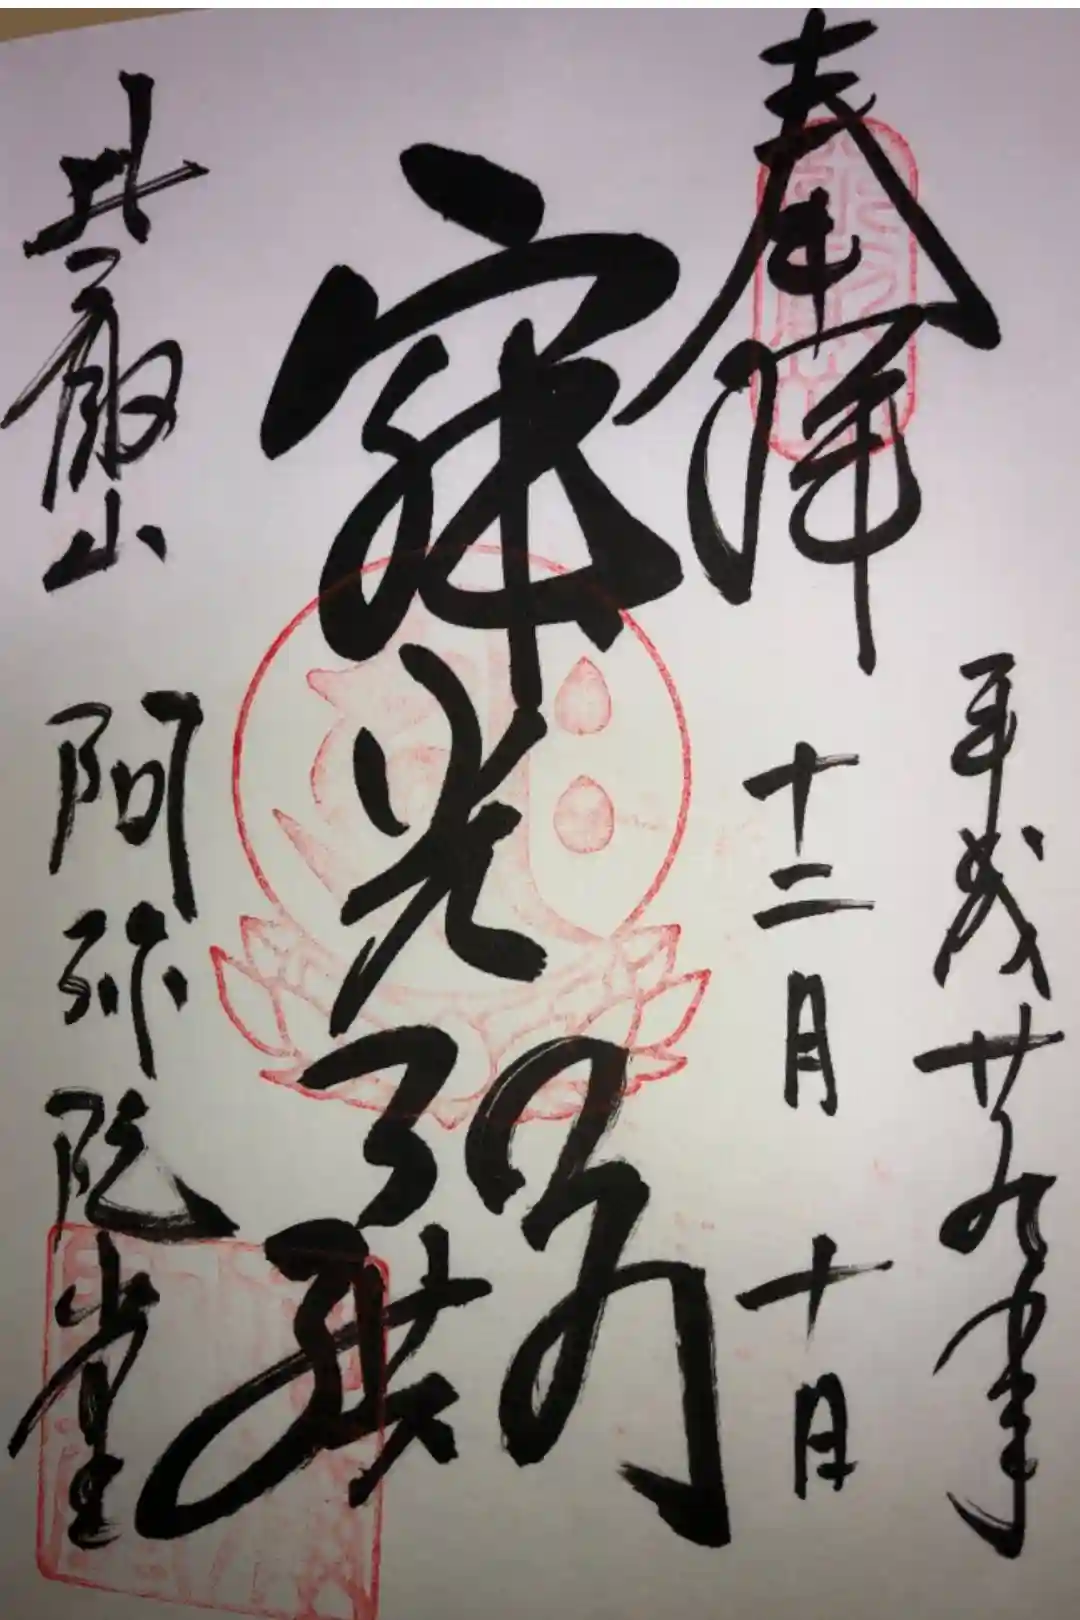 奉拝
平成廿九年
十二月十日
寂光
比叡山
阿弥陀堂